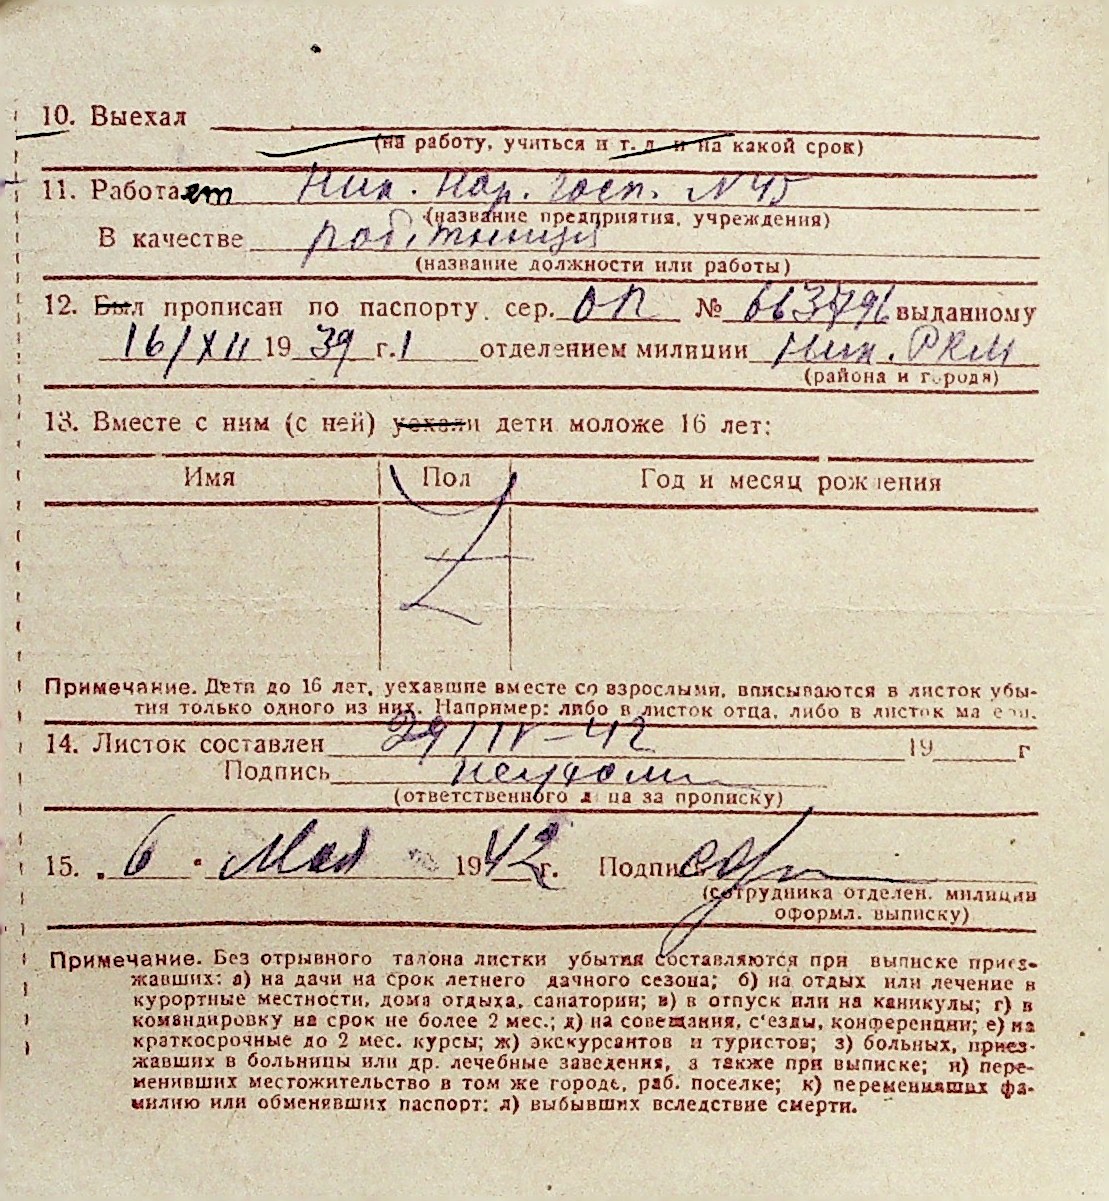 10. Выехал
(на работу, учиться и т. д. и на какой срок)
11. Работает Ник. Нар. Госп. N 45
(название предприятия, учреждения)
В качестве работница
(название должности или работы)
12. Был прописан по паспорту сер. ОП № выданному
16/XII 1939 г. 1 отделением милиции Ник. РКМ
(района и города)
13. Вместе с ним (с ней) уехали дети моложе 16 лет:
Имя Пол Год и месяц рождения
Z
Примечание. Дети до 16 лет, уехавшие вместе со взрослыми, вписываются в листок убы-
тия только одного из них. Например: либо в листок отца, либо в листок матери.
14. Листок составлен 29/IV-42 19 г
Подпись
(ответственного лица за прописку)
15. " 6 " Мая 1942 г. Подпись
(сотрудника отделен. милиции
оформл. выписку)
Примечание. Без отрывного талона листки убытия составляются при выписке приез-
жавших: а) на дачи на срок летнего дачного сезона; б) на отдых или лечение в
курортные местности, дома отдыха, санатории; в) в отпуск или на каникулы; г) в
командировку на срок не более 2 мес.; д) на совещания, с'езды, конференции; е) на
краткосрочные до 2 мес. курсы; ж) экскурсантов и туристов; з) больных, приез-
жавших в больницы или др. лечебные заведения, а также при выписке; и) пере-
менивших местожительство в том же городе, раб. поселке; к) переменивших фа-
милию или обменявших паспорт; л) выбывших вследствие смерти.